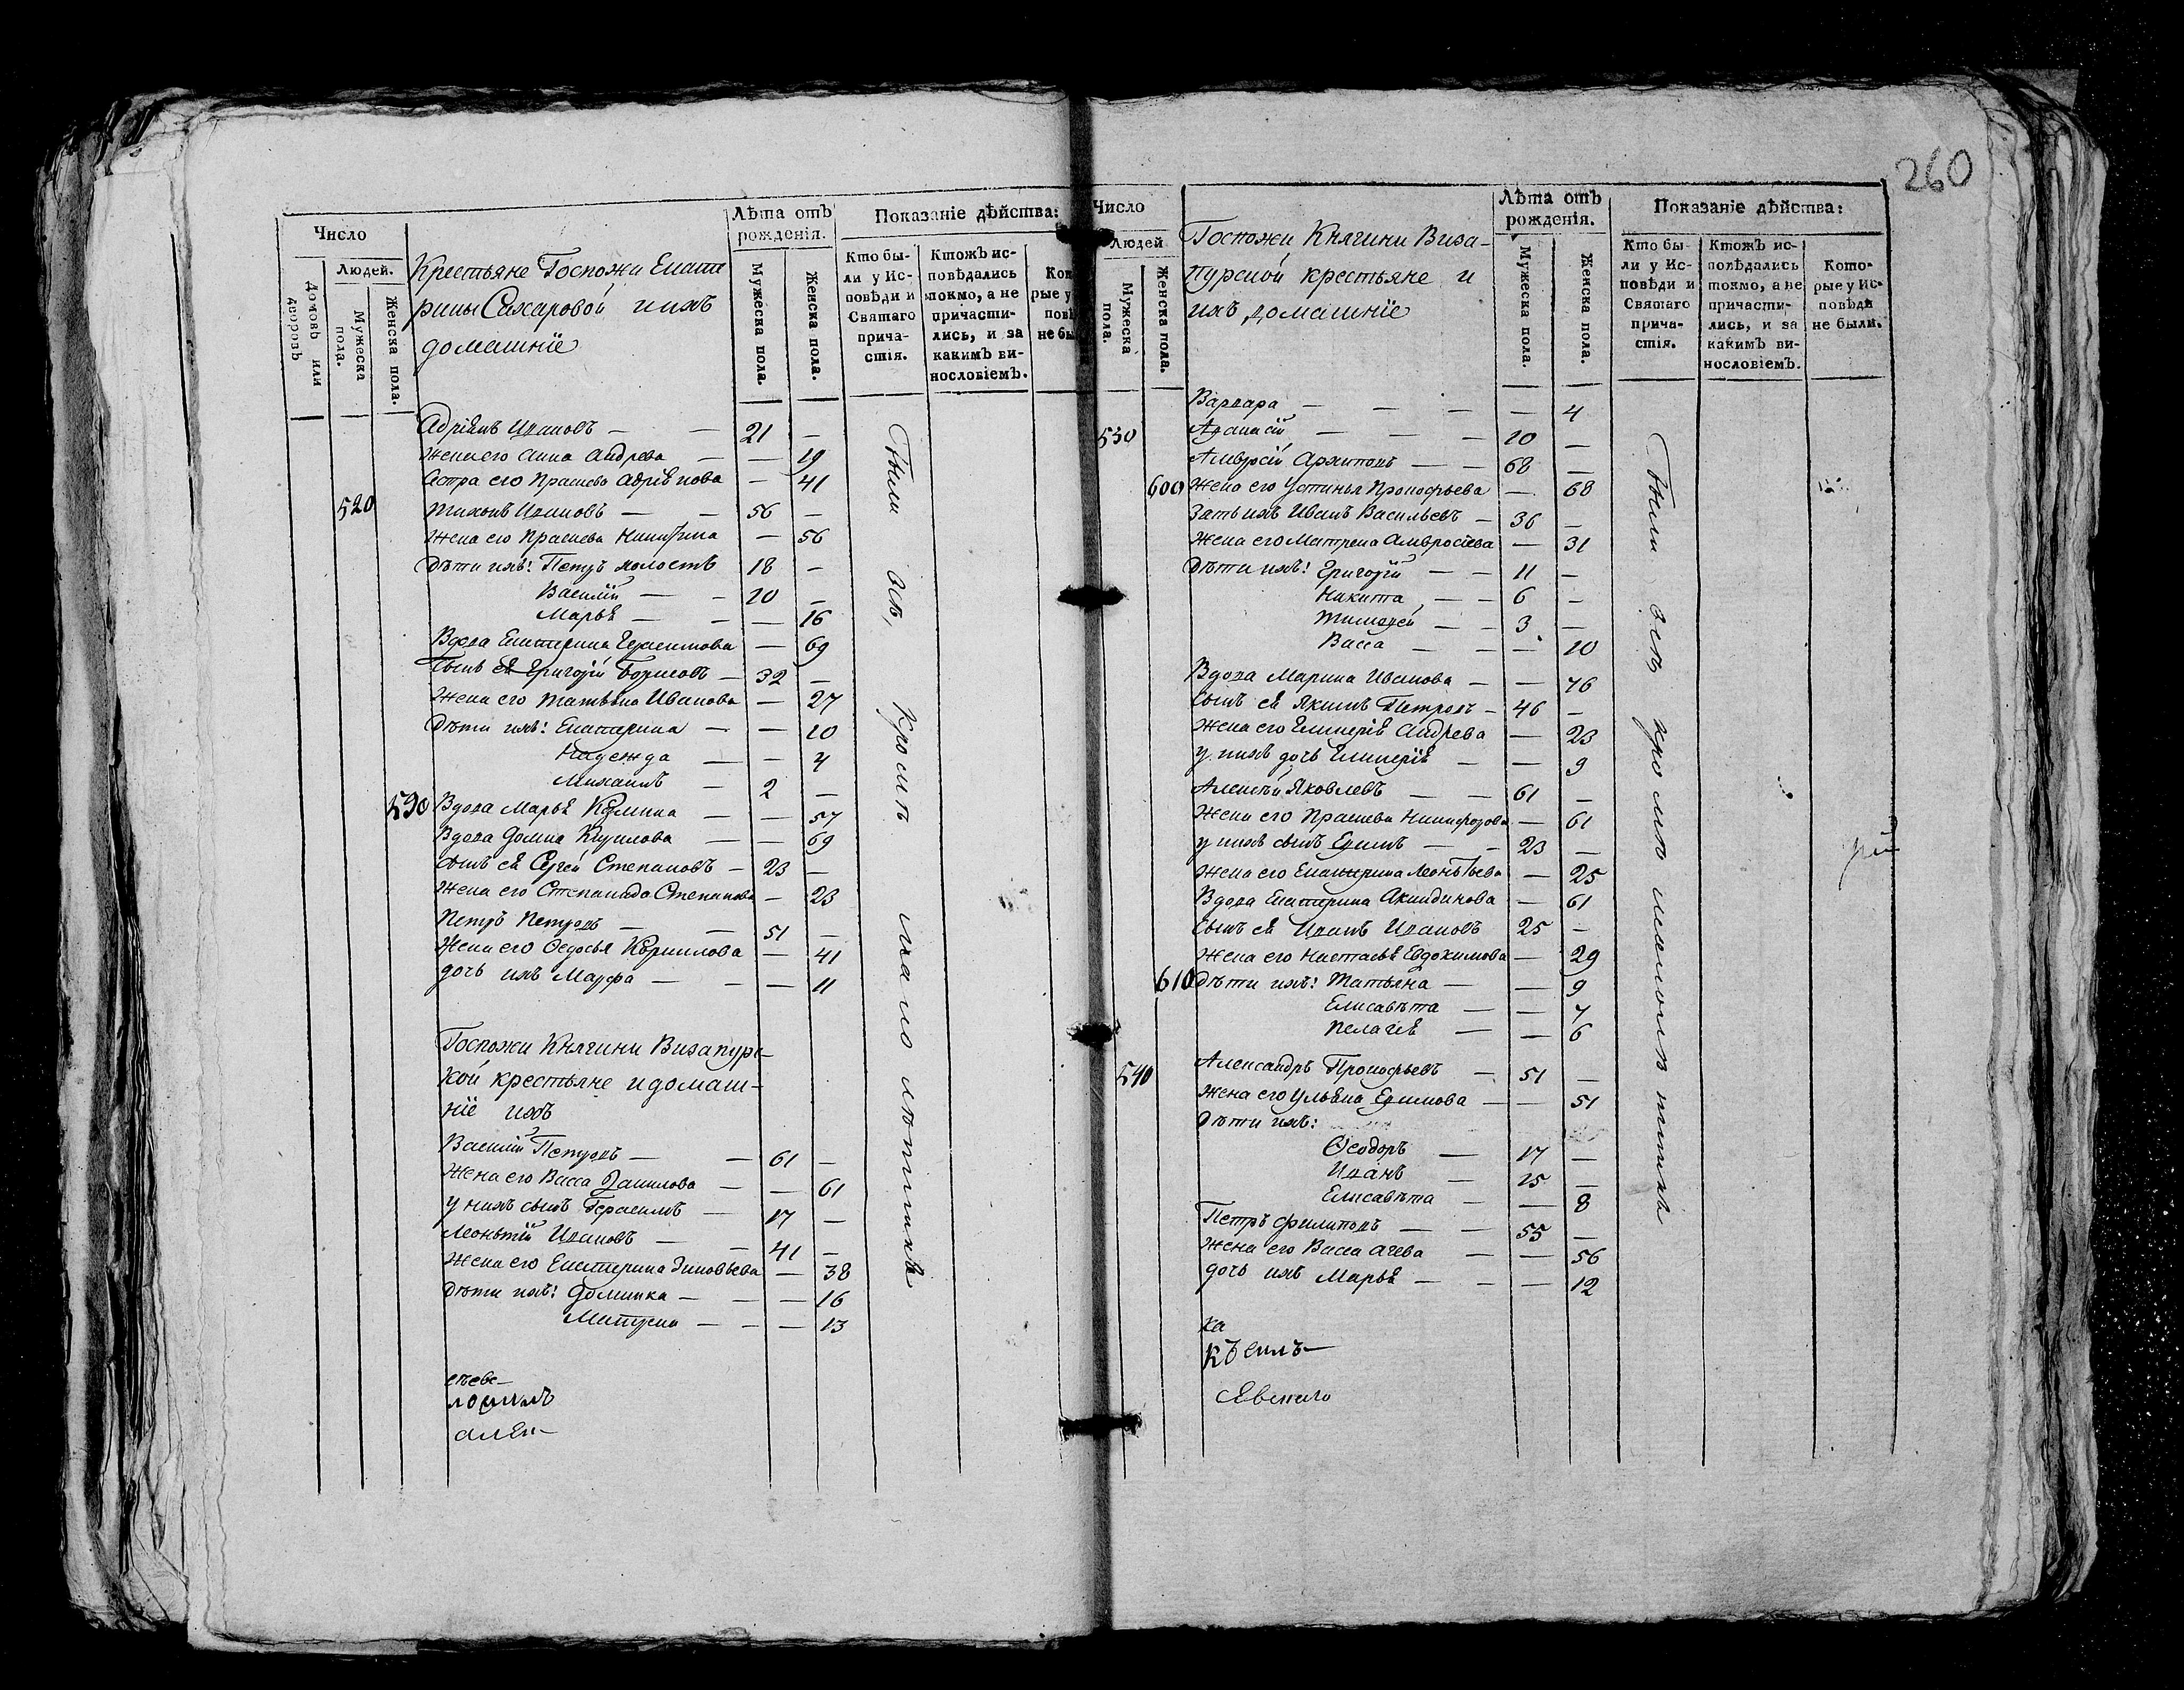 260
Число
Людей.
Домовъ или дворовъ
Мужеска пола.
Женска пола.
Крестьяне Госпожи Екате
рины Сахаровой и ихъ
домашнїе
Лѣта отъ
рожденія.
Мужеска пола.
Женска пола.
Показаніе дѣйства:
Кто бы-
ли у Ис-
повѣди и
Святаго
прича-
стія.
Ктожъ ис-
повѣдались
токмо, а не
причасти-
лись, и за
какимъ ви-
нословіемъ.
Адріянъ Ивановъ — — 21 —
Жена его Анна Андрева — — 19
Сестра его Прасковья — 41
520 Тихонъ Ивановъ — — 56 —
Жена его Прасковья — 56
Дѣти ихъ: Петръ холостъ 18 —
Василій — — 10 —
Марья — — — 16
Вдова Екатерина Герасимова — 69
Сынъ ея Григорій Борисовъ — 32 —
Жена его Татьяна Иванова — 27
Дѣти ихъ: Екатерина — — 10
Надежда — — 4
Михаилъ — 2 —
590 Вдова Марья — — 57
Вдова Домна Кирилова — — 69
Сынъ ея Сергей Степановъ — 23 —
Жена его Степанида Степанова — 23
Петръ Петровъ — — 51 —
Жена его Ѳедосья Корнилова — 41
дочь ихъ Марфа — — — 11
Госпожи Княгини Визапурс-
кой крестьяне и домаш-
нїе ихъ
Василій Петровъ — — 61 —
Жена его Васса Данилова — — 61
У нихъ сынъ Герасимъ — 17 —
Леонтій Ивановъ — — 41 —
Жена его Екатерина Зиновьева — 38
Дѣти ихъ: Домника — — — 16
Матрена — — — 13
Были всѣ, кромѣ малолѣтнихъ
Число
Людей
Мужеска пола.
Женска пола.
Госпожи Княгини Виза-
пурской крестьяне и
ихъ домашнїе
Лѣта отъ
рожденія.
Мужеска пола.
Женска пола.
Показаніе дѣйства:
Кто бы-
ли у Ис-
повѣди и
Святаго
прича-
стія.
Ктожъ ис-
повѣдались
токмо, а не
причасти-
лись, и за
какимъ ви-
нословіемъ.
Кото-
рые у Ис-
повѣди
не были.
Варвара — — — — 4
530 Афанасій — — — 10 —
Амвросій Архиповъ — — 68 —
600 Жена его Устинья Прокофьева — 68
Зять ихъ Иванъ Васильевъ — 36 —
Жена его Матрена Амвросіева — 31
Дѣти ихъ: Григорій — — 11 —
Никита — — 6 —
Тимофей — — 3 —
Васса — — — 10
Вдова Марина Иванова — — 76
Сынъ ея Якимъ Петровъ — 46 —
Жена его Гликерія Андрева — 23
у нихъ дочь Гликерія — — 9
Алексѣй Яковлевъ — — 61 —
Жена его Прасковья Никифорова — 61
у нихъ сынъ Ефимъ — — 23 —
Жена его Екатерина Леонтьева — 25
Вдова Екатерина Акиндинова — 61
Сынъ ея Иванъ Ивановъ 25 —
Жена его Настасья Евдокимова — 29
610 Дѣти ихъ: Татьяна — — 9
Елисавѣта — — 7
Пелагея — — 6
540 Александръ Прокофьевъ — 51 —
Жена его Ульяна Ефимова — — 51
Дѣти ихъ:
Ѳеодоръ — 17 —
Иванъ — 15 —
Елисавѣта — — 8
Петръ Филиповъ — — 55 —
Жена его Васса — — 56
дочь ихъ Марья — — — 12
Были всѣ кромѣ малолѣтнихъ